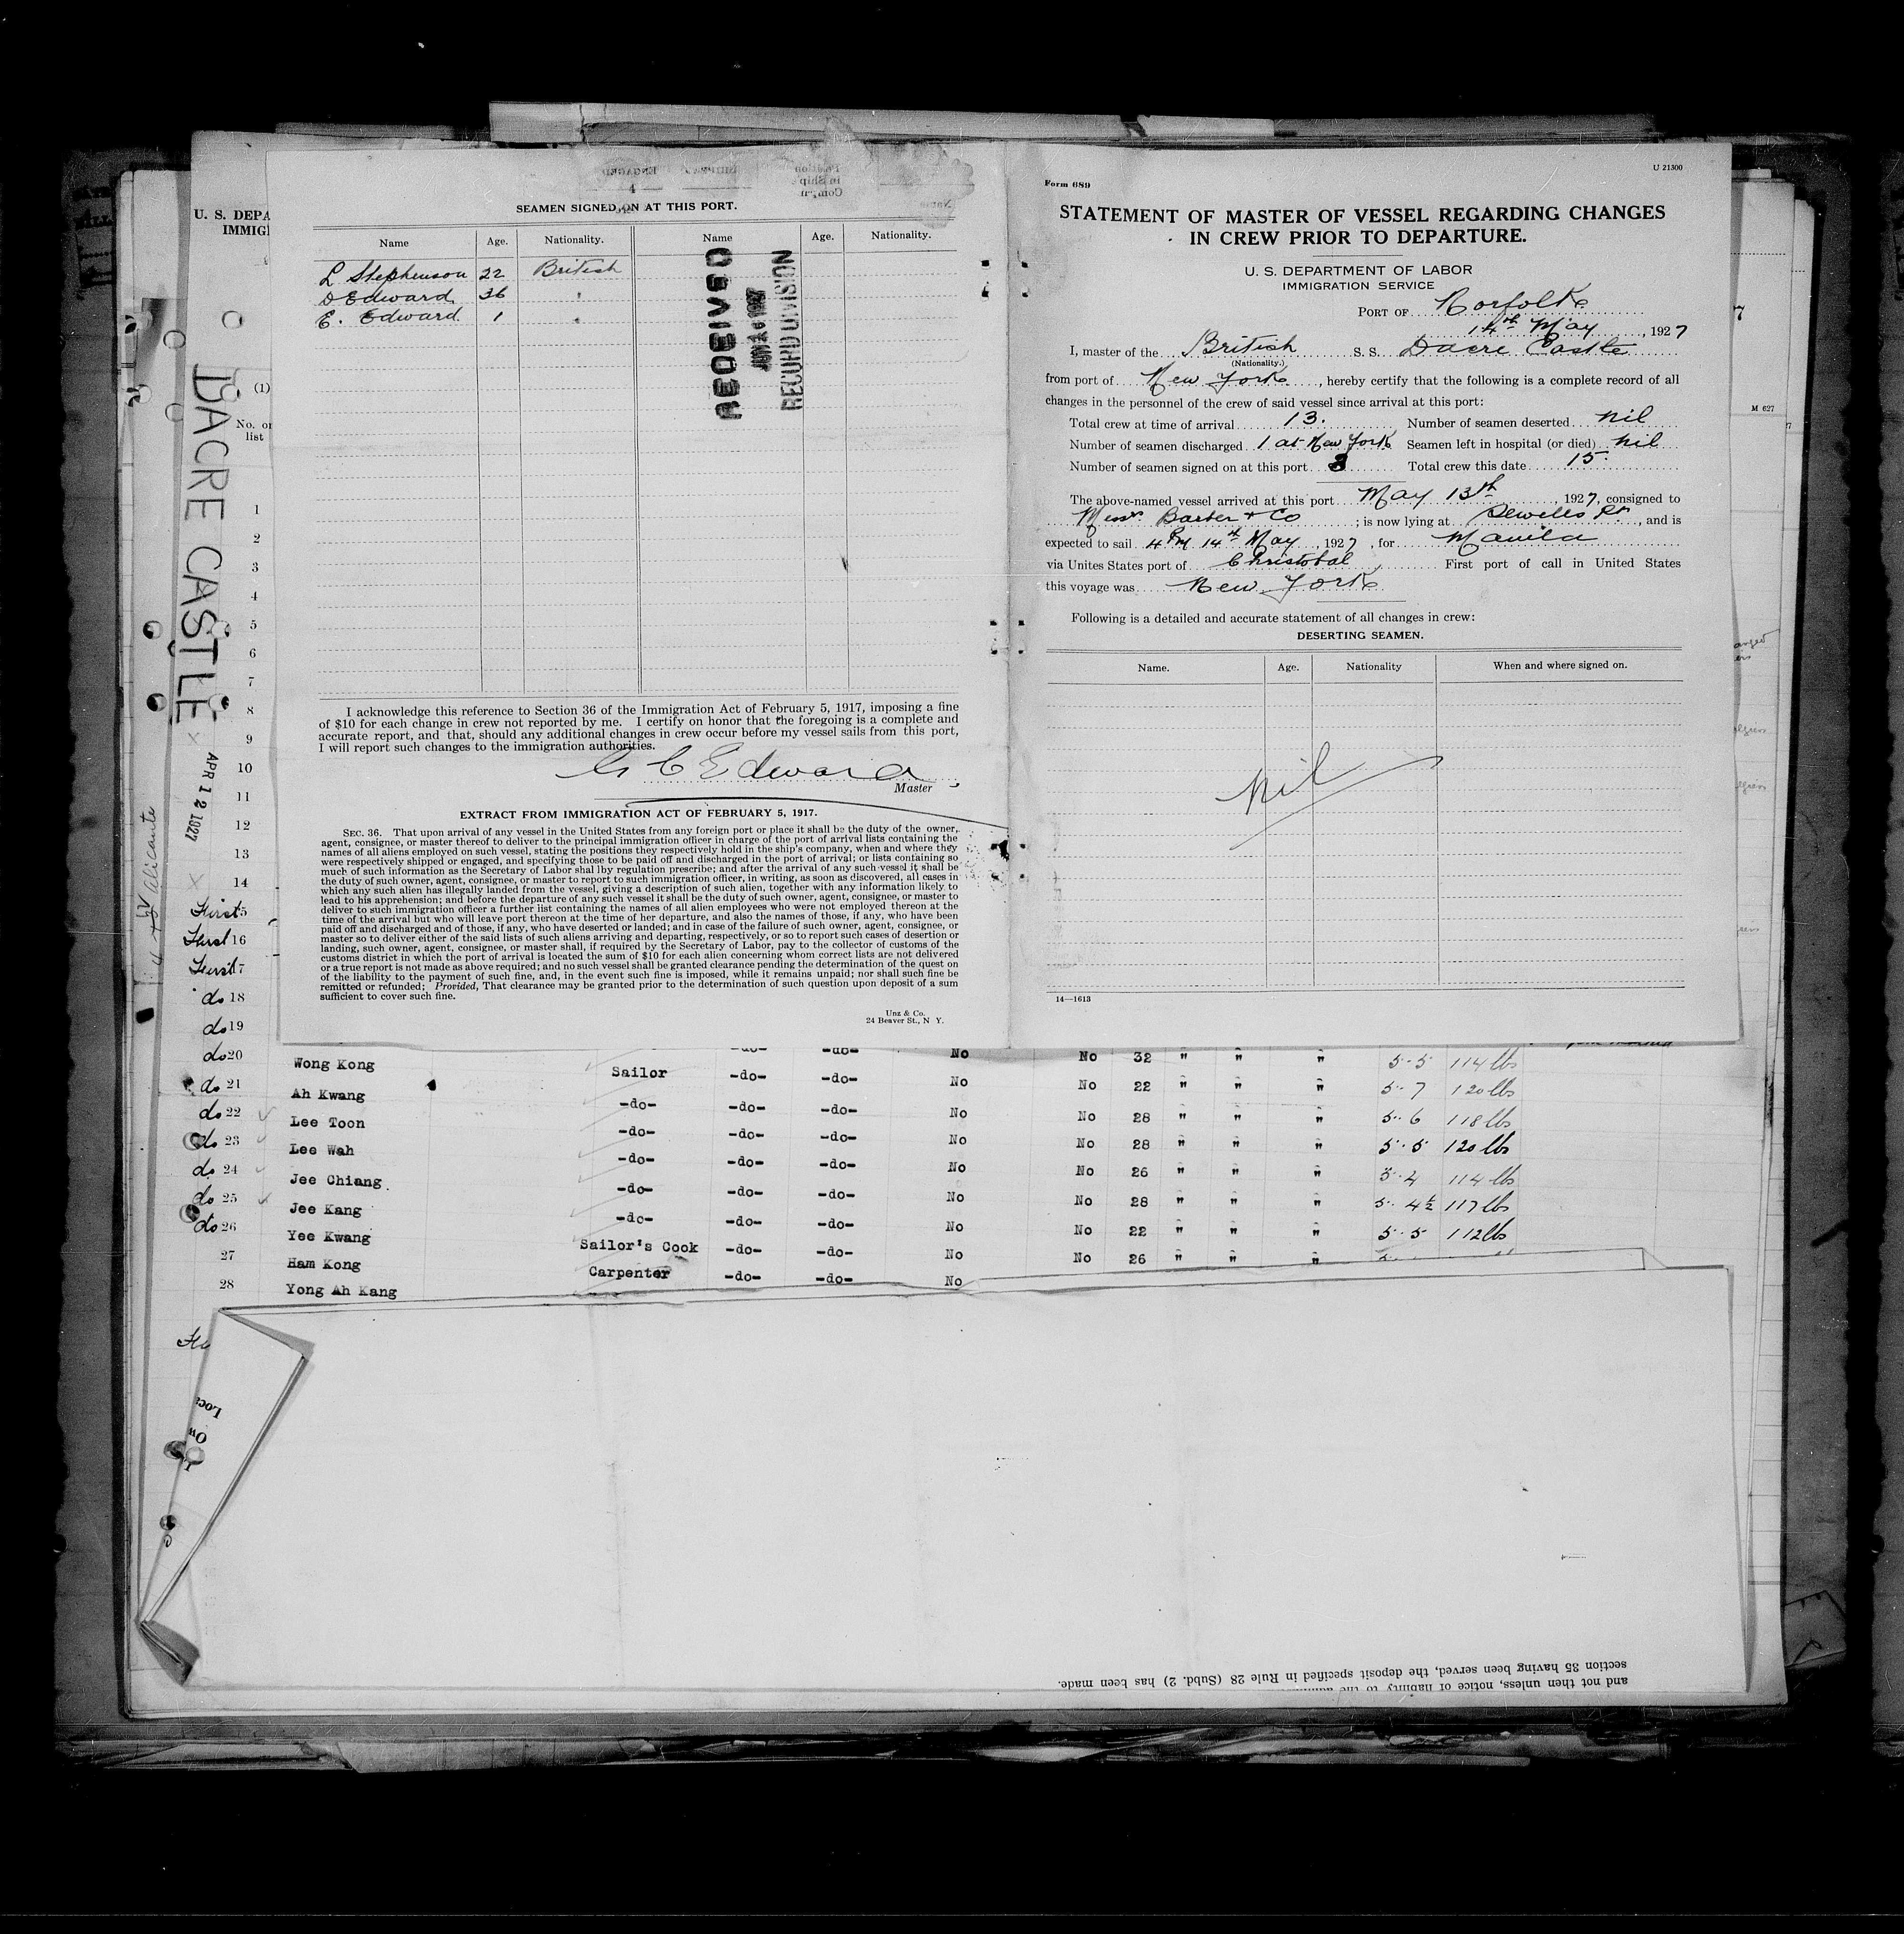 SEAMEN SIGNED ON AT THIS PORT.
Name Age. Nationality. Name Age. Nationality.
L Stephenson 22 British
D Edward 36 "
E. Edward 1 "
RECEIVED
RECORD DIVISION
I acknowledge this reference to Section 36 of the Immigration Act of February 5, 1917, imposing a fine
of $10 for each change in crew not reported by me. I certify on honor that the foregoing is a complete and
accurate report, and that, should any additional changes in crew occur before my vessel sails from this port,
I will report such changes to the immigration authorities.
Edward
Master
EXTRACT FROM IMMIGRATION ACT OF FEBRUARY 5, 1917.
SEC. 36. That upon arrival of any vessel in the United States from any foreign port or place it shall be the duty of the owner,
agent, consignee, or master thereof to deliver to the principal immigration officer in charge of the port of arrival lists containing the
names of all aliens employed on such vessel, stating the positions they respectively hold in the ship's company, when and where they
were respectively shipped or engaged, and specifying those to be paid off and discharged in the port of arrival; or lists containing so
much of such information as the Secretary of Labor shal lby regulation prescribe; and after the arrival of any such vessel it shall be
the duty of such owner, agent, consignee, or master to report to such immigration officer, in writing, as soon as discovered, all cases in
which any such alien has illegally landed from the vessel, giving a description of such alien, together with any information likely to
lead to his apprehension; and before the departure of any such vessel it shall be the duty of such owner, agent, consignee, or master to
deliver to such immigration officer a further list containing the names of all alien employees who were not employed thereon at the
time of the arrival but who will leave port thereon at the time of her departure, and also the names of those, if any, who have been
paid off and discharged and of those, if any, who have deserted or landed; and in case of the failure of such owner, agent, consignee, or
master so to deliver either of the said lists of such aliens arriving and departing, respectively, or so to report such cases of desertion or
landing, such owner, agent, consignee, or master shall, if required by the Secretary of Labor, pay to the collector of customs of the
customs district in which the port of arrival is located the sum of $10 for each alien concerning whom correct lists are not delivered
or a true report is not made as above required; and no such vessel shall be granted clearance pending the determination of the quest on
of the liability to the payment of such fine, and, in the event such fine is imposed, while it remains unpaid; nor shall such fine be
remitted or refunded; Provided, That clearance may be granted prior to the determination of such question upon deposit of a sum
sufficient to cover such fine.
Unz & Co.
24 Beaver St., N Y.
U 21300
Form 689
STATEMENT OF MASTER OF VESSEL REGARDING CHANGES
IN CREW PRIOR TO DEPARTURE.
U. S. DEPARTMENT OF LABOR
IMMIGRATION SERVICE
PORT OF Norfolk
14th May, 1927
I, master of the British S. S. Dacre Castle
(Nationality.)
from port of New York, hereby certify that the following is a complete record of all
changes in the personnel of the crew of said vessel since arrival at this port:
Total crew at time of arrival 13. Number of seamen deserted nil
Number of seamen discharged 1 at New York Seamen left in hospital (or died) nil
Number of seamen signed on at this port 3 Total crew this date 15
The above-named vessel arrived at this port May 13th, 1927, consigned to
Messrs Barber & Co; is now lying at Sewells Pt., and is
expected to sail 4 PM 14th May, 1927, for Manila
via Unites States port of Christobal First port of call in United States
this voyage was New York
Following is a detailed and accurate statement of all changes in crew:
DESERTING SEAMEN.
Name. Age. Nationality When and where signed on.
nil
14—1613
U. S. DEPA
IMMIG
(1)
No. on
list
DACRE CASTLE
APR 12 1927
Alicante
M 627
1
2
3
4
5
6
7
8
9
10
11
12
13
14
First 15
First 16
First 17
do 18
do 19
do 20
do 21
do 22
do 23
do 24
do 25
do 26
27
28
Wong Kong Sailor -do- -do- No No 32 " " " 5-5 114 lbs
Ah Kwang -do- -do- -do- No No 22 " " " 5-7 120 lbs
Lee Toon -do- -do- -do- No No 28 " " " 5-6 118 lbs
Lee Wah -do- -do- -do- No No 28 " " " 5-5 120 lbs
Jee Chiang -do- -do- -do- No No 26 " " " 5-4 114 lbs
Jee Kang -do- -do- -do- No No 28 " " " 5-4½ 117 lbs
Yee Kwang Sailor's Cook -do- -do- No No 22 " " " 5-5 112 lbs
Ham Kong Carpenter -do- -do- No No 26 " " "
Yong Ah Kang
and not then unless, notice of liability to the
section 35 having been served, the deposit specified in Rule 28 (Subd. 2) has been made.